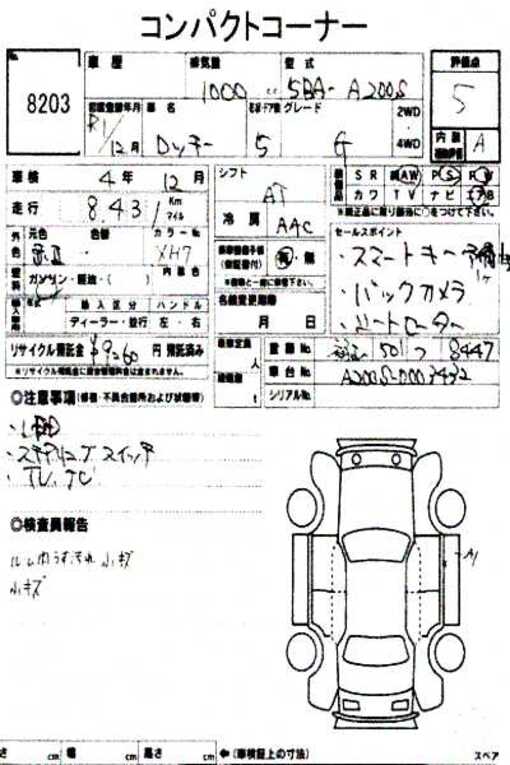 コンパクトコーナー
No. 8203
車歴 排気量 1000 cc 型式 5BA- A200S 評価点 5
初度登録年月 R1/12月 車名 ロッキー 形状・ドア数 5 グレード G 2WD 4WD 内装 A
車検 4年 12月 シフト AT SR AW PS PW
走行 8.431 Km マイル 冷房 AAC カワ TV ナビ
※純正品に限り該当に○をつけて下さい。
外色 元色 色替 カラーNo. XH7 有・無 セールスポイント
・スマートキー
燃料 ガソリン・軽油・( ) 内装色 ※車両と一緒に御座下さい。
・バックカメラ
輸入車 年式 輸入区分 ハンドル 名義変更期限
ディーラー・並行 左・右 月 日 ・シートヒーター
リサイクル預託金 ¥9260 円 預託済み 乗車定員 人 登録No. 501 8447
※リサイクル預託金に資金管理料金は含まれません。 車台No. A200S-0003432
積載量 t シリアルNo.
◎注意事項(修復・不具合箇所および状態等)
・LED
・ステアリングスイッチ
・TV
◎検査員報告
ルーム内うす汚れ 小キズ
小キズ
A1
さ cm 幅 cm 高さ cm ←(車検証上の寸法) スペア